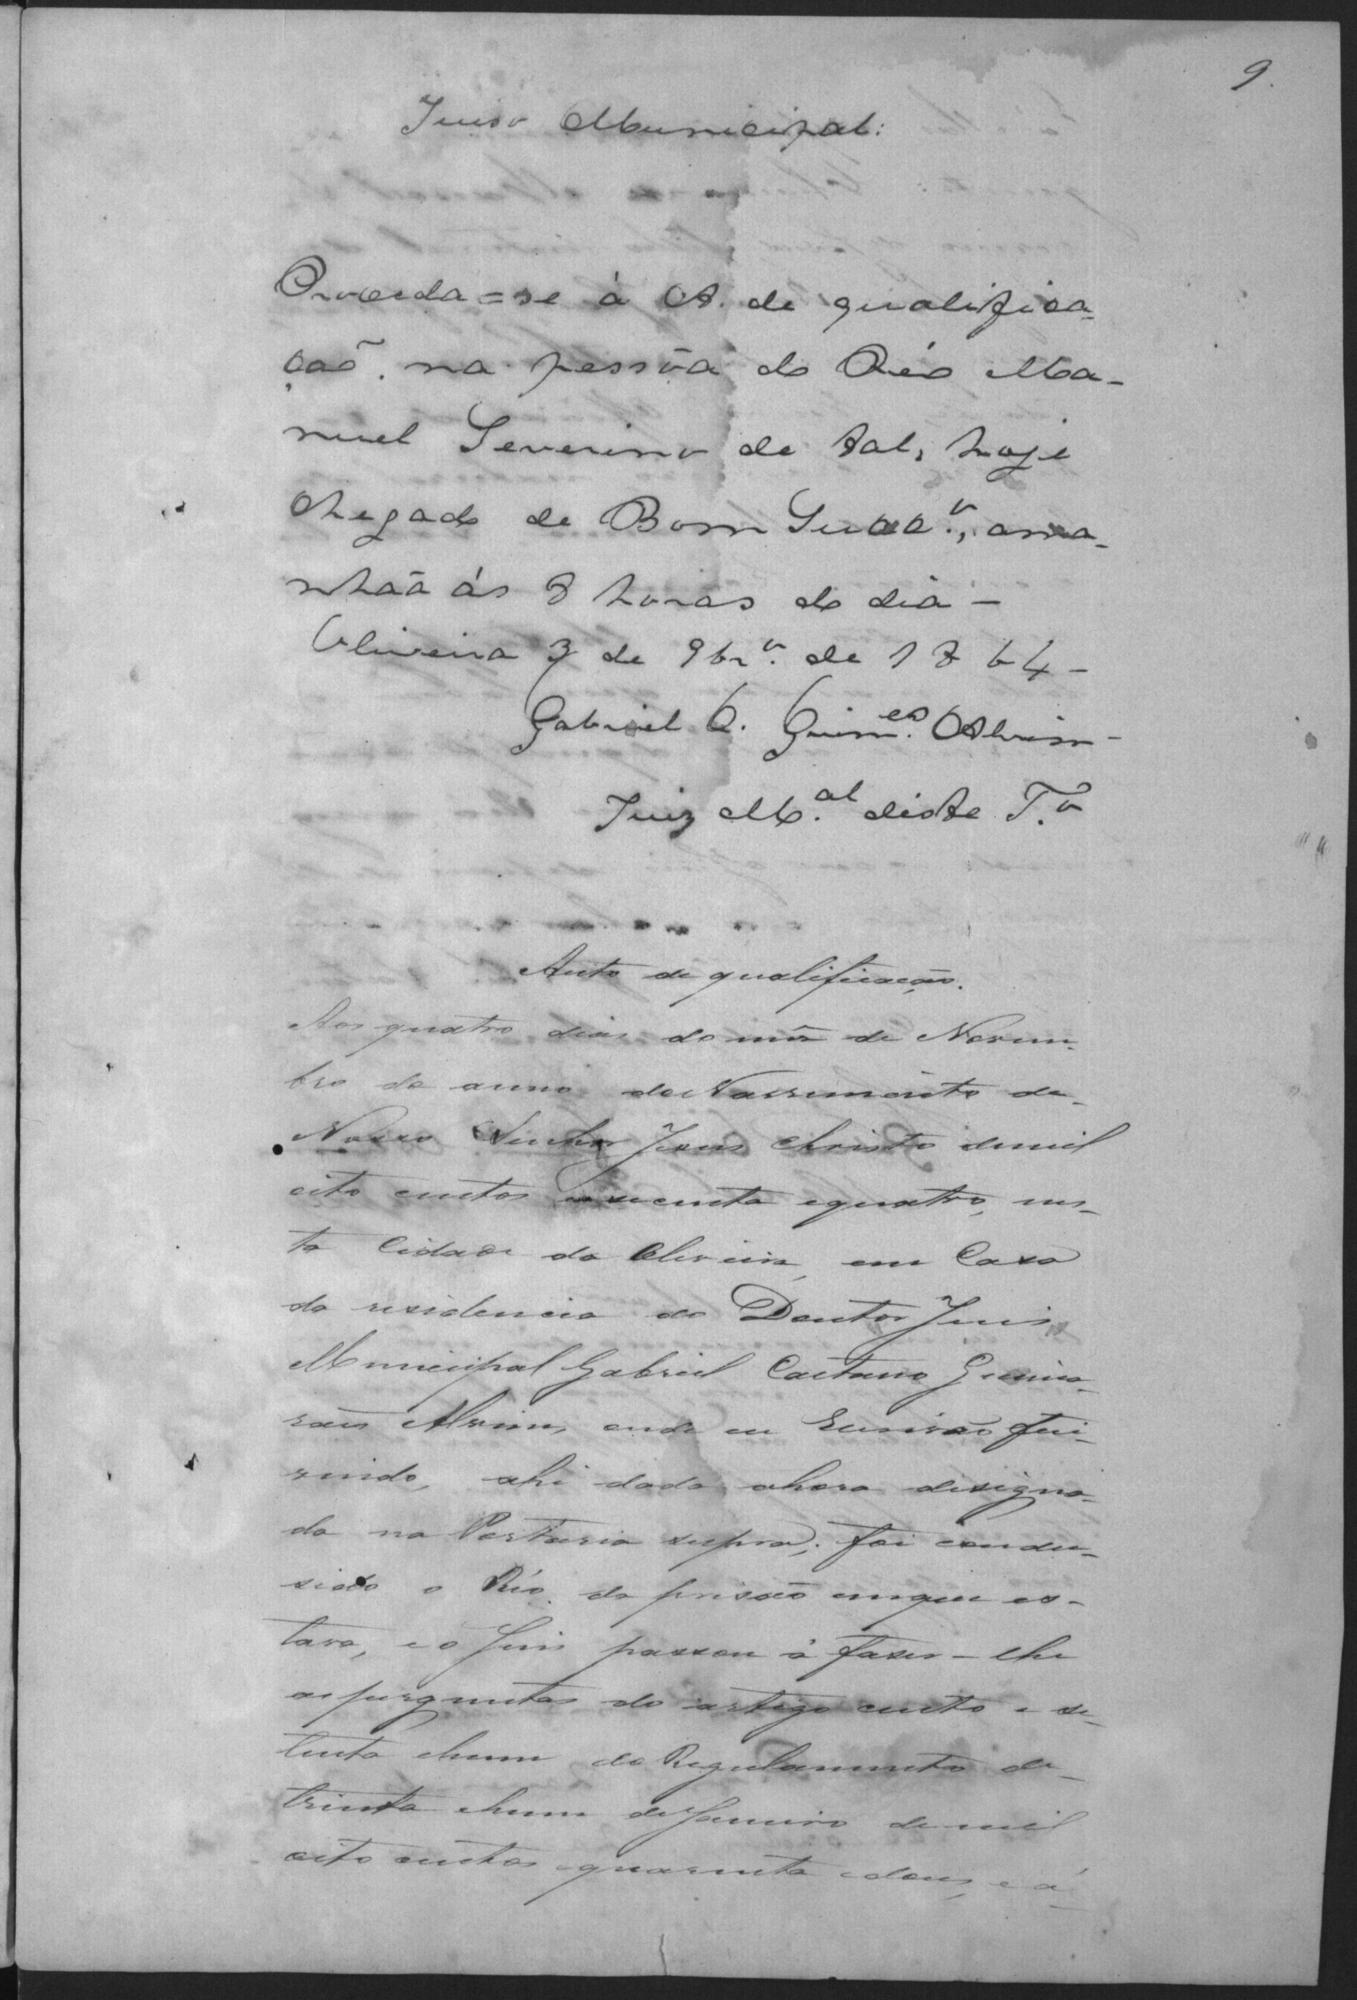 9.
Juiso Municipal:
Proceda=se á A. de qualifica-
ção, na pessôa do Réo Ma-
nuel Severino de tal, hoje
chegado de Bom Succ.º, ama-
nhãa ás 8 horas do dia –
Oliveira 3 de 9br.º de 1864 –
Gabriel C. Guim.es Alvim –
Juiz M.al deste T.º
Auto de qualificação.
Aos quatro dias do mês de Novem-
bro do anno do Nascimento de
Nosso Senhor Jesus Christo de mil
oito centos e sessenta e quatro, nes-
ta Cidade da Oliveira, em Casa
da residencia do Doutor Juis
Municipal Gabriel Caetano Guima-
rães Alvim, onde eu Escrivão fui
vindo, ahi dada ahora designa-
da na Portaria supra; foi condu-
sido o Réo da prisão emque es-
tava, e o Juis passou á faser-lhe
as perguntas do artigo cento e se-
tenta ehum do Regulamento de
trinta ehum de Janeiro de mil
oito centos e quarenta e dous, e á